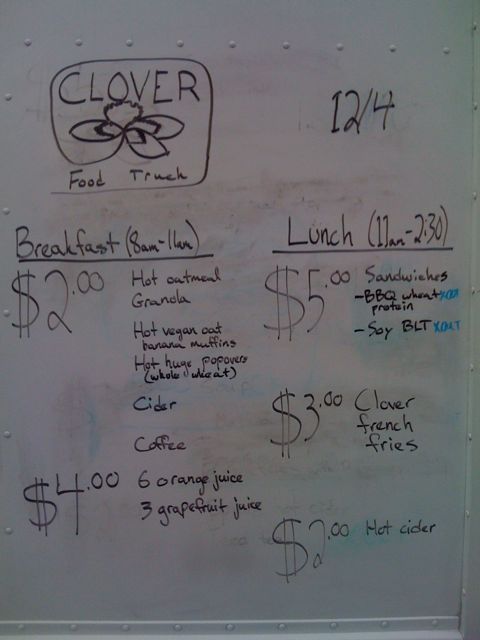 CLOVER
Food Truck
12/4
Breakfast (8am-11am)
$2.00 Hot oatmeal
Granola
Hot vegan oat
banana muffins
Hot huge popovers
(whole wheat)
Cider
Coffee
$4.00 6 orange juice
3 grapefruit juice
Lunch (11am-2:30)
$5.00 Sandwiches
-BBQ wheat
protein
-Soy BLT
$3.00 Clover
french
fries
$2.00 Hot cider